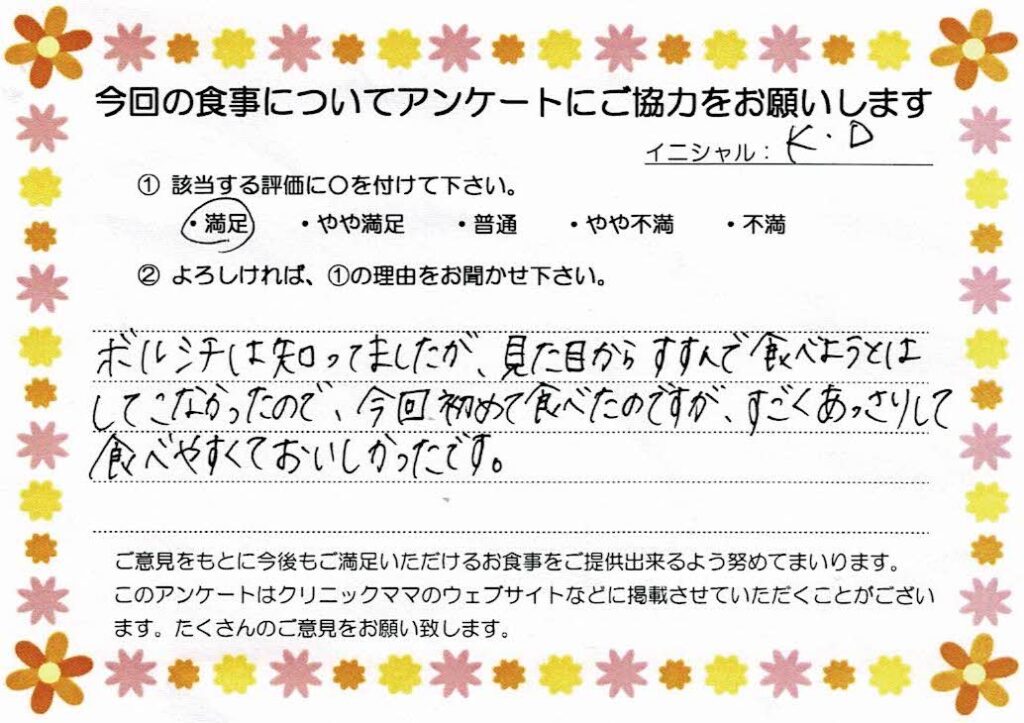 今回の食事についてアンケートにご協力をお願いします
イニシャル： K・D
① 該当する評価に〇を付けて下さい。
・満足 ・やや満足 ・普通 ・やや不満 ・不満
② よろしければ、①の理由をお聞かせ下さい。
ボルシチは知ってましたが、見た目からすすんで食べようとは
してこなかったので、今回初めて食べたのですが、すごくあっさりして
食べやすくておいしかったです。
ご意見をもとに今後もご満足いただけるお食事をご提供出来るよう努めてまいります。
このアンケートはクリニックママのウェブサイトなどに掲載させていただくことがござい
ます。たくさんのご意見をお願い致します。